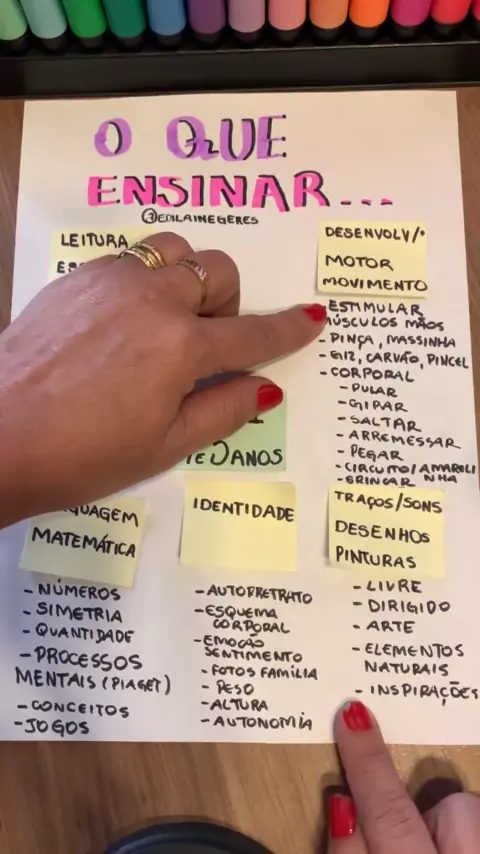 O QUE
ENSINAR...
@EDILAINEGERES
LEITURA
DESENVOLV/º
MOTOR
MOVIMENTO
ESTIMULAR
MÚSCULOS MÃOS
- PINÇA, MASSINHA
- GIZ, CARVÃO, PINCEL
- CORPORAL
- PULAR
- GIRAR
- SALTAR
- ARREMESSAR
- PEGAR
- CIRCUITO/AMARELI
- BRINCAR NHA
5 ANOS
MATEMÁTICA
- NÚMEROS
- SIMETRIA
- QUANTIDADE
- PROCESSOS
MENTAIS (PIAGET)
- CONCEITOS
- JOGOS
IDENTIDADE
- AUTORRETRATO
- ESQUEMA
CORPORAL
- EMOÇÃO
SENTIMENTO
- FOTOS FAMÍLIA
- PESO
- ALTURA
- AUTONOMIA
TRAÇOS/SONS
DESENHOS
PINTURAS
- LIVRE
- DIRIGIDO
- ARTE
- ELEMENTOS
NATURAIS
- INSPIRAÇÕES